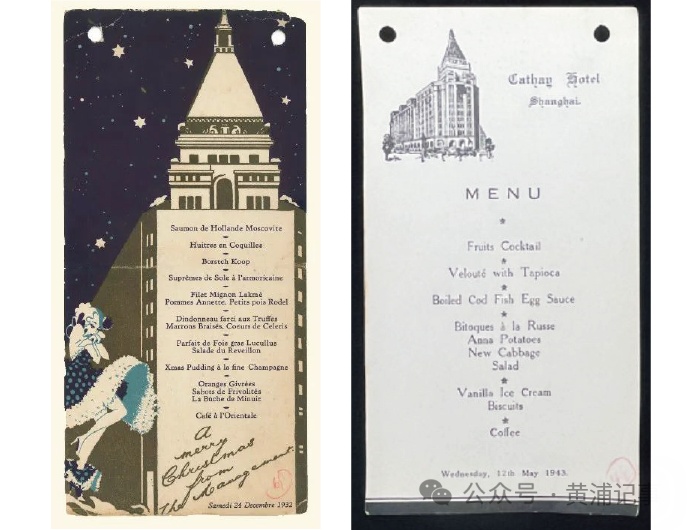 Saumon de Hollande Moscovite
Huitres en Coquilles
Borstch Koop
Suprêmes de Sole à l'armoricaine
Filet Mignon Lakmé
Pommes Annette. Petits pois Rodel
Dindonneau farci aux Truffes
Marrons Braisés. Coeurs de Celeris
Parfait de Fois gras Lucullus
Salade du Reveillon
Xmas Pudding à la fine Champagne
Oranges Givrées
Sabots de Frivolités
La Bûche de Minuit
Café à l'Orientale
A
merry
Christmas
from
The Management.
Samedi 24 Decembre 1932
Cathay Hotel
Shanghai.
MENU
Fruits Cocktail
Velouté with Tapioca
Boiled Cod Fish Egg Sauce
Bitoques à la Russe
Anna Potatoes
New Cabbage
Salad
Vanilla Ice Cream
Biscuits
Coffee
Wednesday, 12th May 1943.
公众号·黄浦记